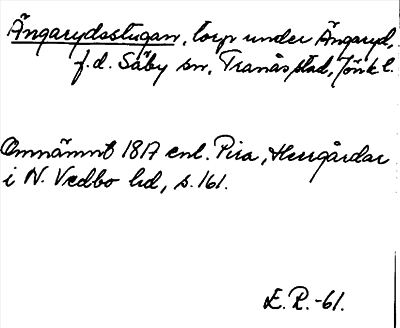 Ängarydsstugan, torp under Ängaryd,
f.d. Säby sn, Tranås stad, Jönk l.
Omnämnt 1817 enl. Pira, Herrgårdar
i N. Vedbo hd, s. 161.
E. R. -61.